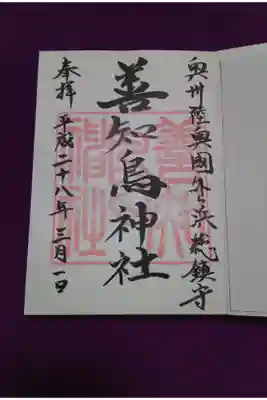 奥州陸奥國外ヶ浜総鎮守
善知鳥神社
奉拝 平成二十八年三月一日